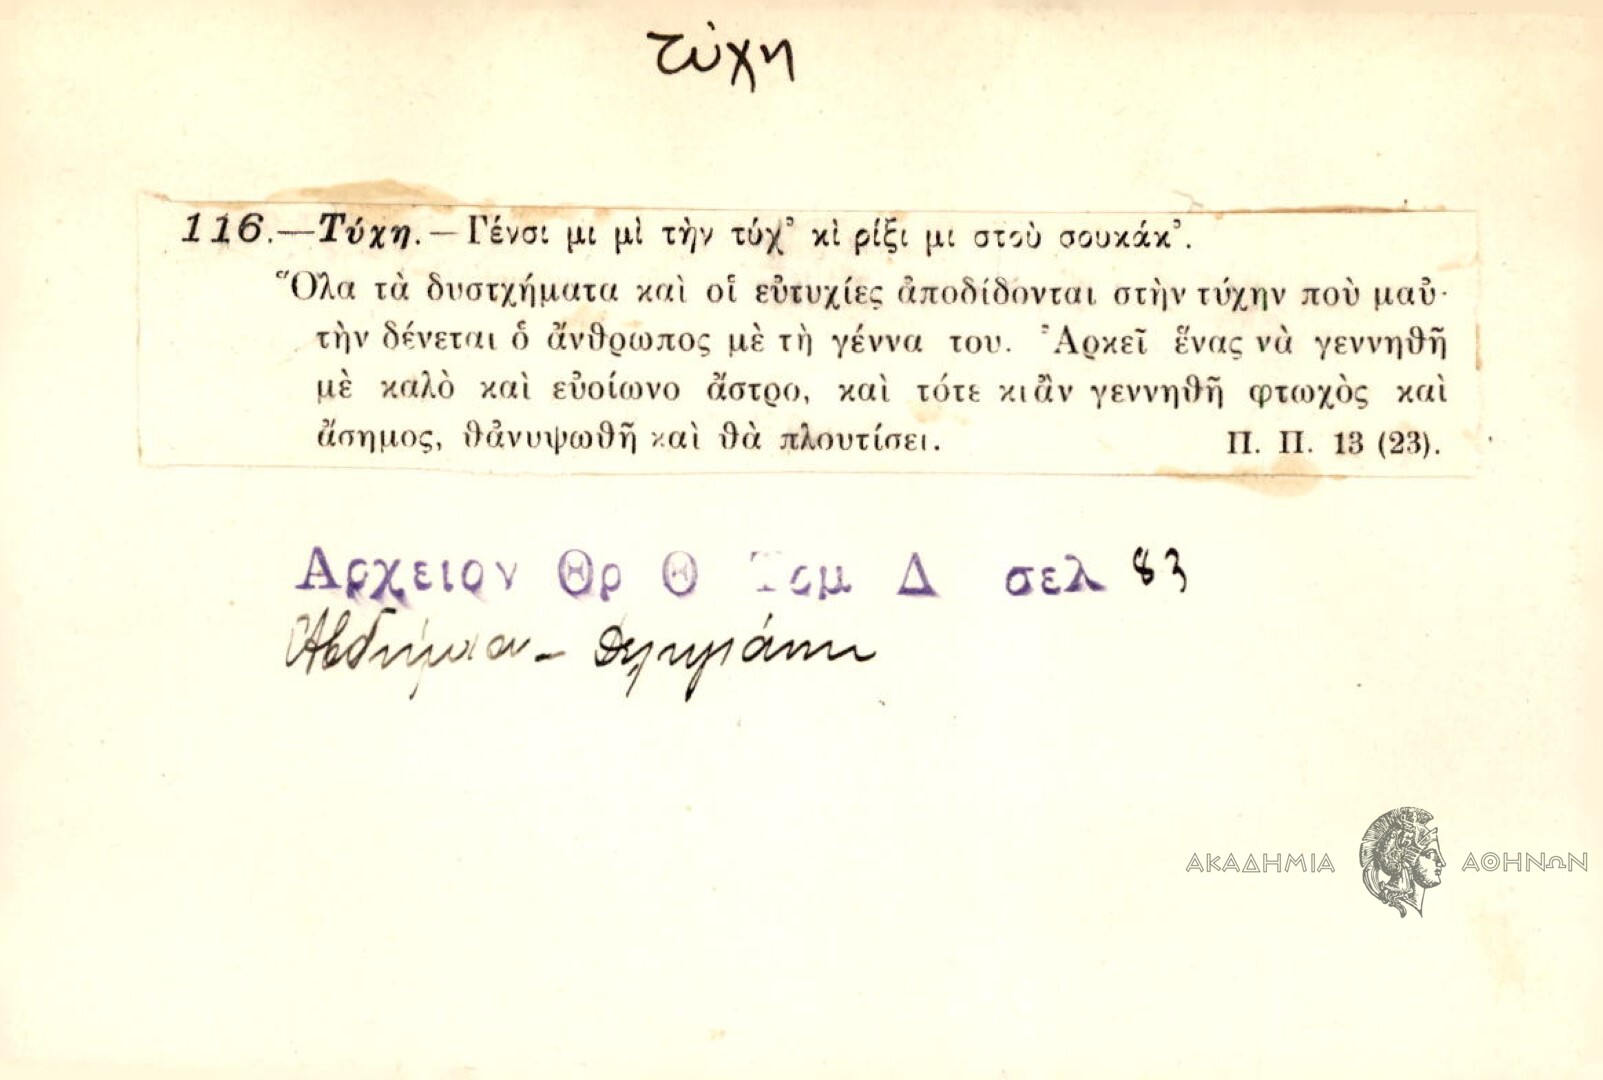 τύχη
116.—Τύχη.—Γένσι μι μὶ τὴν τύχ᾽ κὶ ρίξι μι στοὺ σουκάκ᾽.
Ὅλα τὰ δυστχήματα καὶ οἱ εὐτυχίες ἀποδίδονται στὴν τύχην ποὺ μαὐ-
τὴν δένεται ὁ ἄνθρωπος μὲ τὴ γέννα του. Ἀρκεῖ ἕνας νὰ γεννηθῆ
μὲ καλὸ καὶ εὐοίωνο ἄστρο, καὶ τότε κιἂν γεννηθῆ φτωχὸς καὶ
ἄσημος, θἀνυψωθῆ καὶ θὰ πλουτίσει. Π. Π. 13 (23).
Αρχειον Θρ Θ Τομ Δ σελ 83
ΑΚΑΔΗΜΙΑ ΑΘΗΝΩΝ